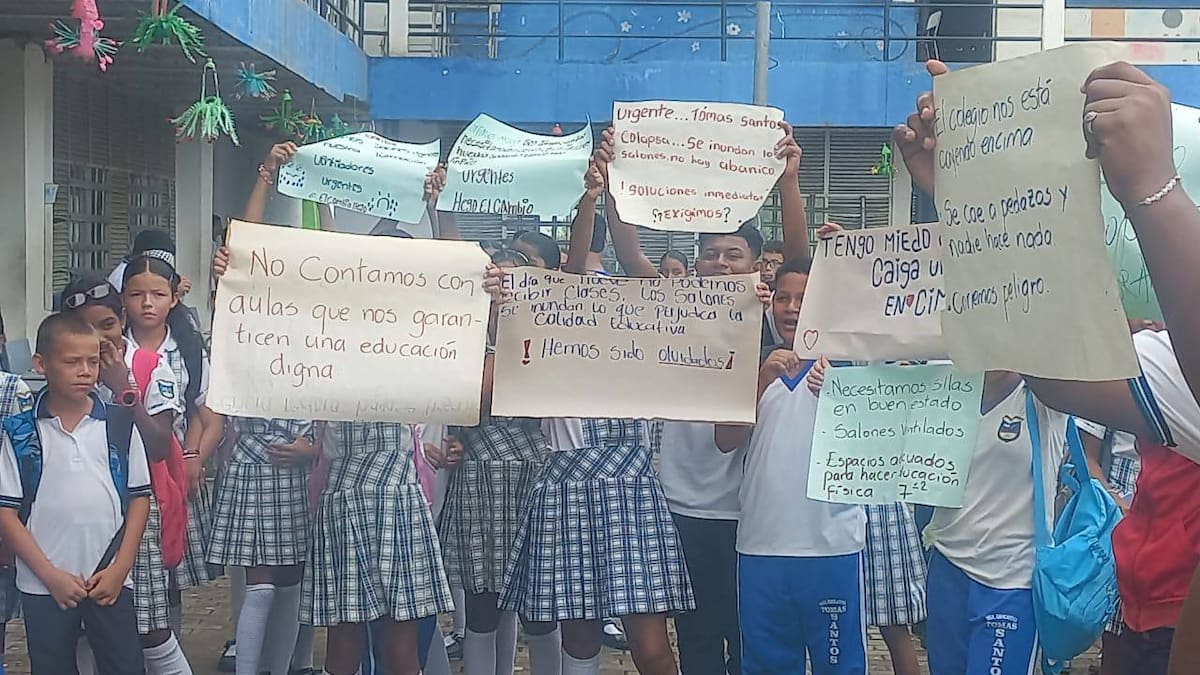 ventiladores
urgentes
urgentes
Urgente... Tomas Santos
Colapsa... Se inundan lo
salones, no hay abanico
¡Soluciones inmediatas
¿Exigimos?
No Contamos con
aulas que nos garan-
ticen una educación
digna
El día que llueve no Podemos
Clases, Los Salones
se inundan Lo que perjudica la
Calidad Educativa
¡Hemos sido olvidados¡
TENGO MIEDO
Caiga U
EN CIM
El colegio nos está
cayendo encima
Se cae a pedazos y
nadie hace nada
Corremos peligro.
- Necesitamos Sillas
en buen estado
- Salones Ventilados
- Espacios
para hacer
física 7
TOMAS
SANTOS
TOMAS
SANTOS